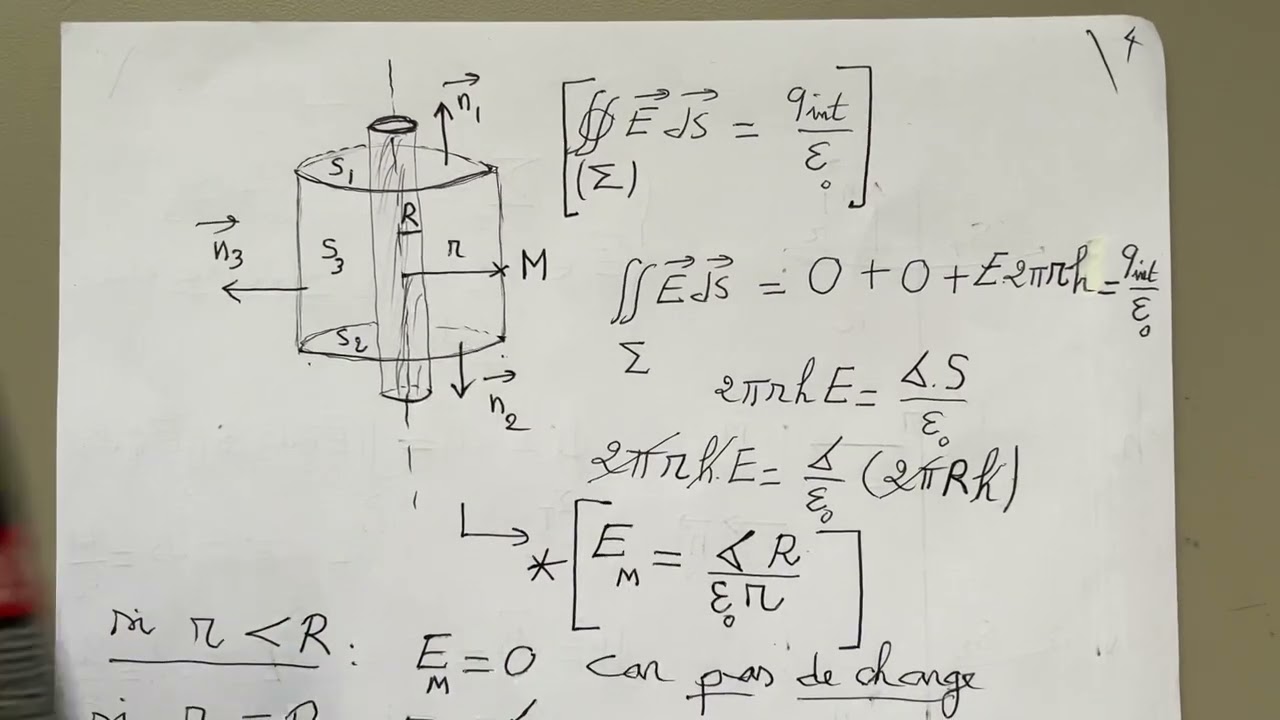 4
n⃗₁
S₁
R
r
M
n⃗₃
S₃
S₂
n⃗₂
[∯ E⃗ dS⃗ = q_int / ε₀]
(Σ)
∬ E⃗ dS⃗ = 0 + 0 + E 2πrh = q_int / ε₀
Σ
2πrh E = σ.S / ε₀
2πrh.E = σ / ε₀ (2πRh)
* [E_M = σ R / ε₀ r]
si r < R : E_M = 0 car pas de charge
si r = R